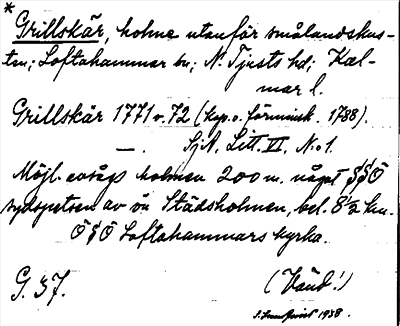 *
Grillskär, holme utanför smålandskus-
ten; Loftahammar sn; N. Tjusts hd; Kal-
mar l.
Grillskär 1771 o. 72 (kop. o. förminsk. 1788).
—. SjK. Litt. VI. No 1.
Möjl. avsågs holmen 200 m. något SSÖ
sydspetsen av ön Städsholmen, bel. 8½ km.
ÖSÖ Loftahammars kyrka.
G. 37.
(Vänd!)
1938.